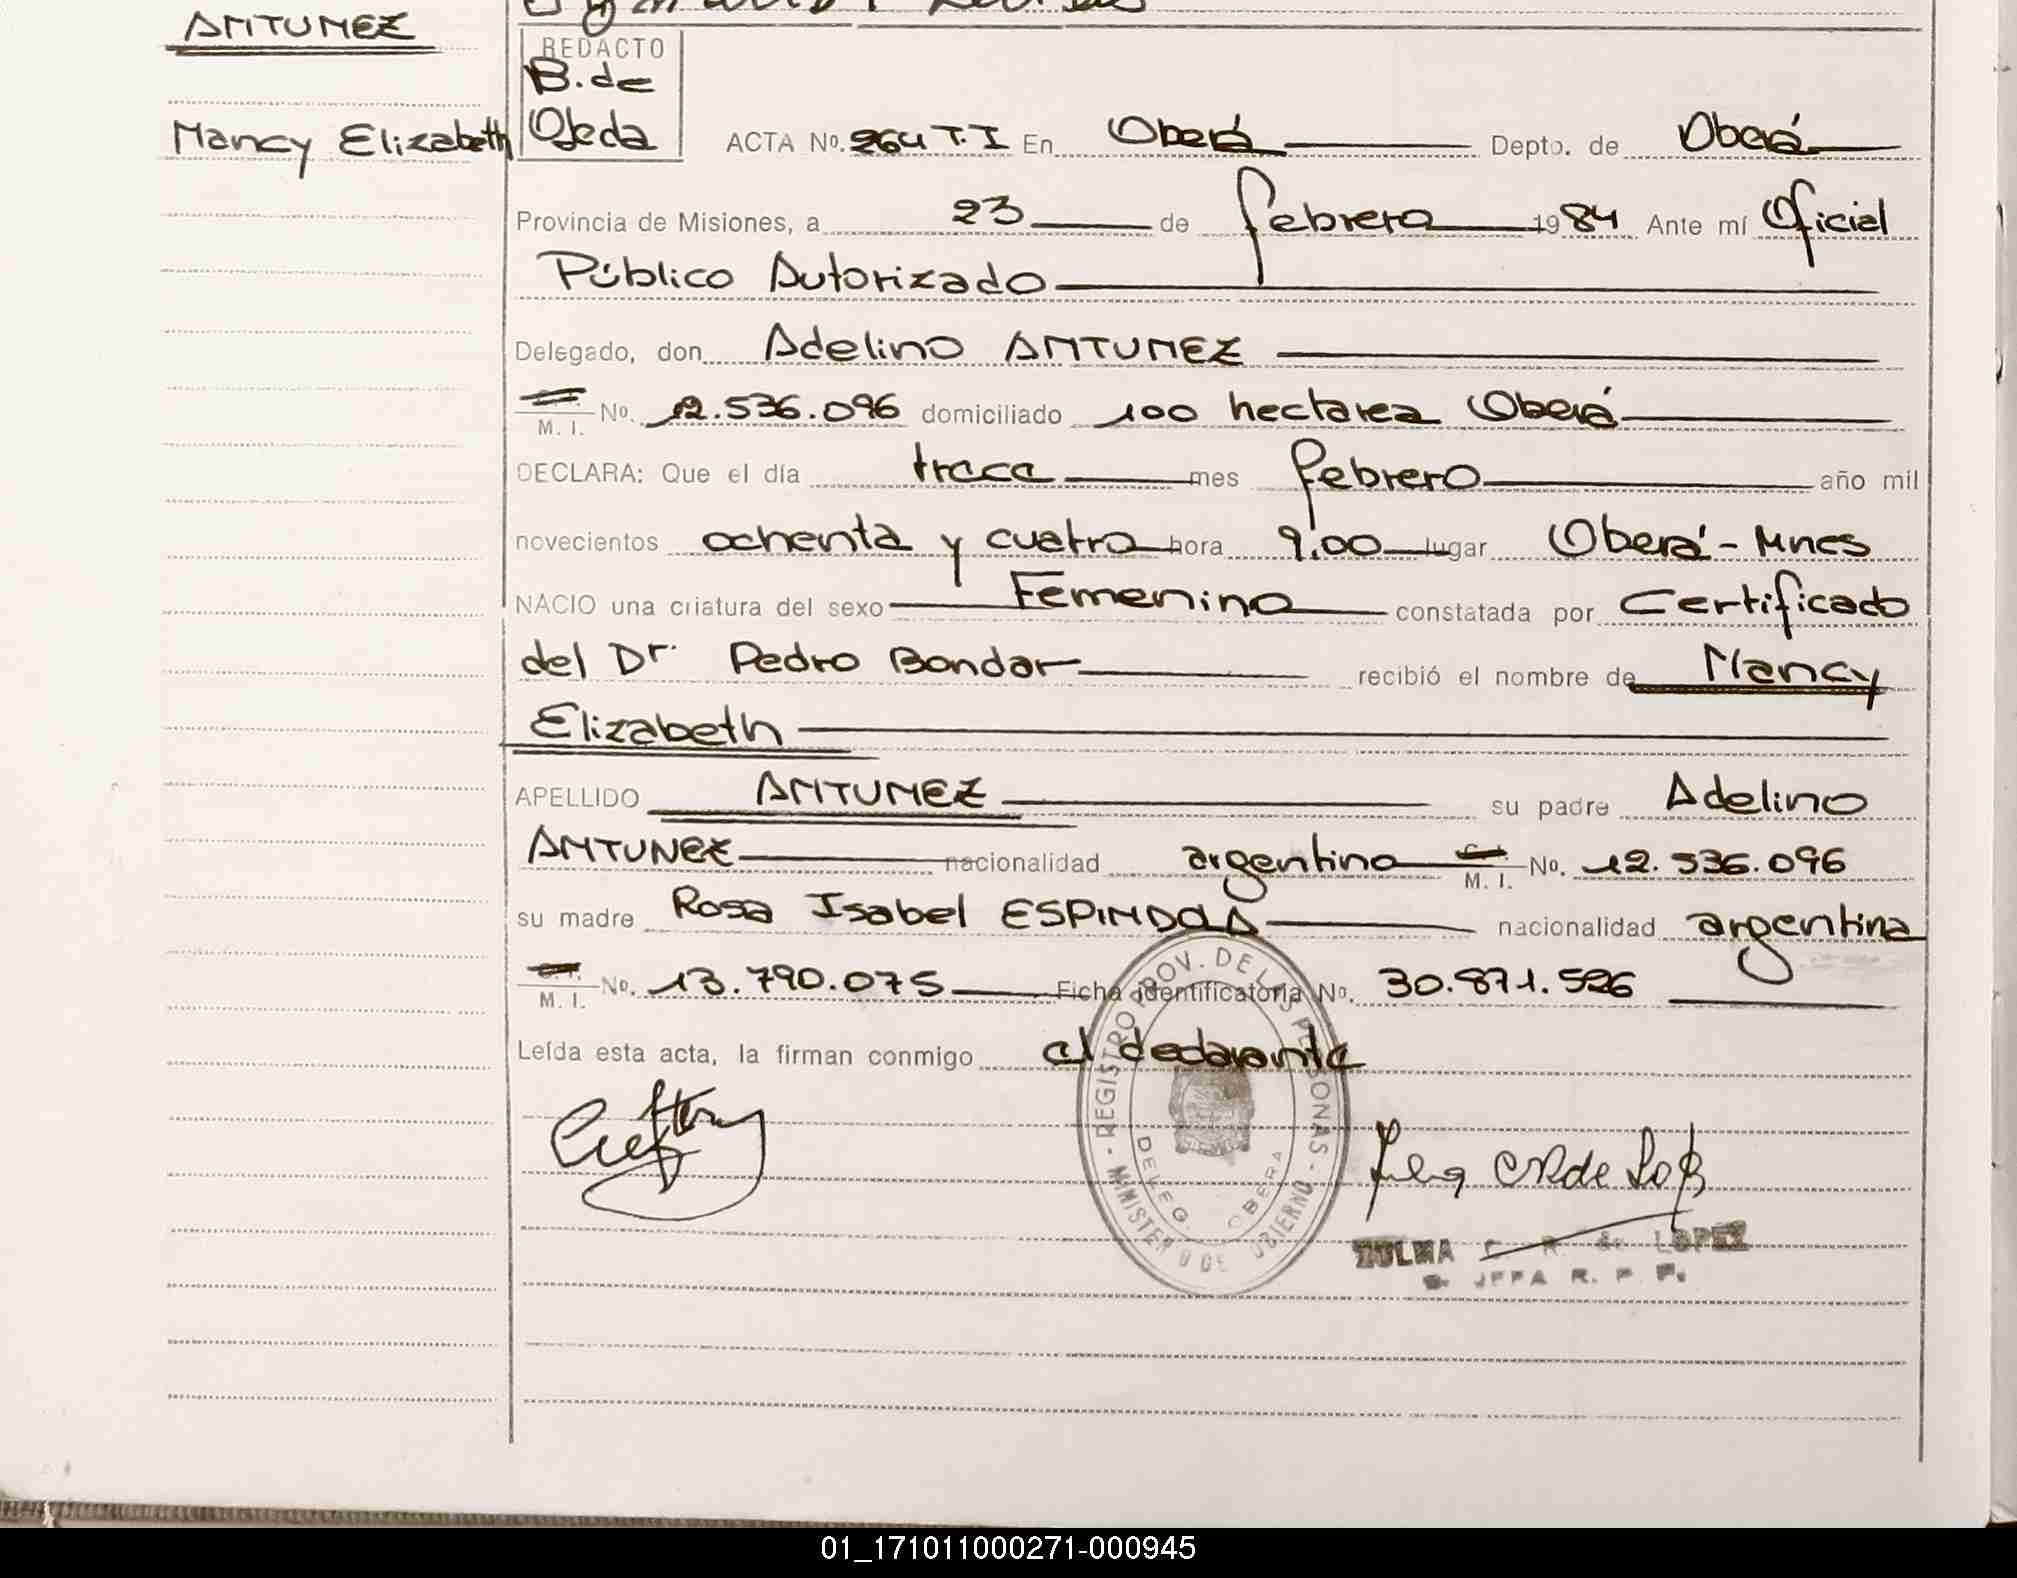 ANTUNEZ
Nancy Elizabeth
REDACTO
B. de
Ojeda
ACTA No. 264 T.I En Oberá Depto. de Oberá
Provincia de Misiones, a 23 de febrero 1984 Ante mí Oficial
Público Autorizado
Delegado, don Adelino ANTUNEZ
M. I. No. 12.536.096 domiciliado 100 hectarea Oberá
DECLARA: Que el día trece mes febrero año mil
novecientos ochenta y cuatro hora 9.00 lugar Oberá - Mnes
NACIO una criatura del sexo Femenino constatada por Certificado
del Dr. Pedro Bondar recibió el nombre de Nancy
Elizabeth
APELLIDO ANTUNEZ su padre Adelino
ANTUNEZ nacionalidad argentino M. I. No. 12.536.096
su madre Rosa Isabel ESPINDOLA nacionalidad argentina
M. I. No. 13.790.075 Ficha identificatoria No. 30.871.526
Leída esta acta, la firman conmigo el declarante
REGISTRO PROV. DE LAS PERSONAS - MINISTERIO DE GOBIERNO -
DELEG. OBERA
ZULMA C. R. de LOPEZ
JEFA R. P. P.
01_171011000271-000945